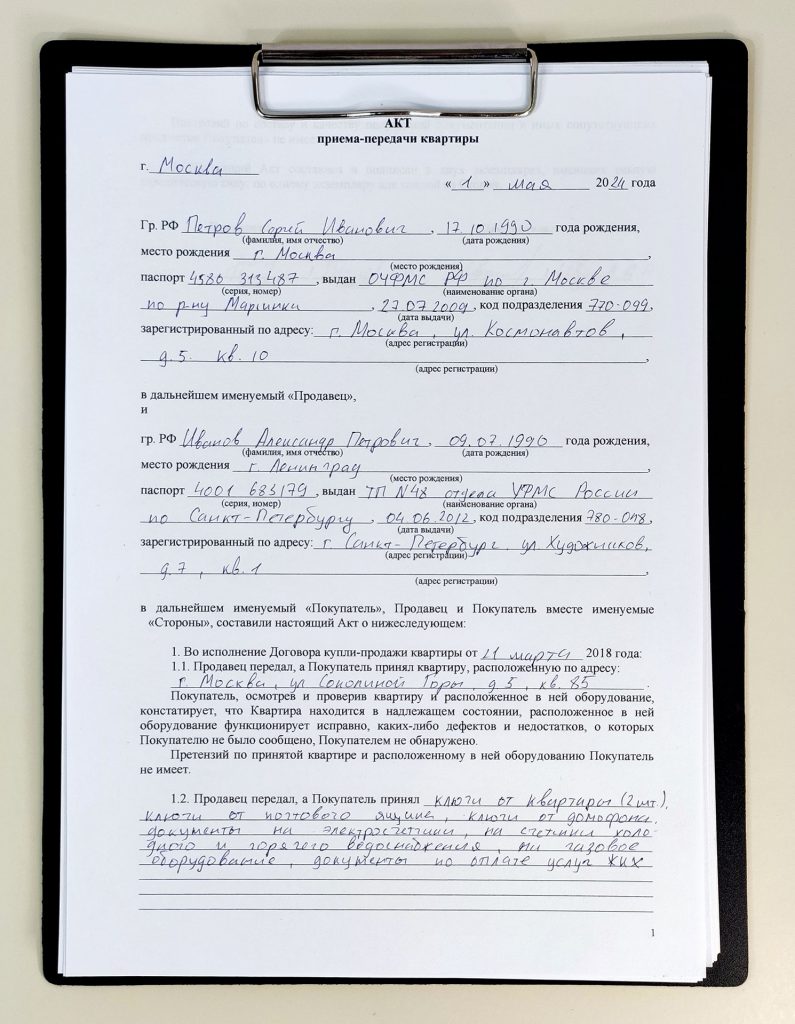 АКТ
приема-передачи квартиры
г. Москва
« 1 » мая 2024 года
Гр. РФ Петров Сергей Иванович , 17.10.1990 года рождения,
(фамилия, имя отчество) (дата рождения)
место рождения г. Москва ,
(место рождения)
паспорт 4580 313487 , выдан ОУФМС РФ по г. Москве
(серия, номер) (наименование органа)
по р-ну Марьинки , 27.07.2009 , код подразделения 770-099,
(дата выдачи)
зарегистрированный по адресу: г. Москва , ул. Космонавтов ,
(адрес регистрации)
д.5. кв. 10 ,
(адрес регистрации)
в дальнейшем именуемый «Продавец»,
и
гр. РФ Иванов Александр Петрович , 09.07.1990 года рождения,
(фамилия, имя отчество) (дата рождения)
место рождения г. Ленинград ,
(место рождения)
паспорт 4001 683179 , выдан ТП №48 отдела УФМС России
(серия, номер) (наименование органа)
по Санкт-Петербургу , 04.06.2012 , код подразделения 780-048,
(дата выдачи)
зарегистрированный по адресу: г. Санкт-Петербург, ул. Художников,
(адрес регистрации)
д.7 , кв.1 ,
(адрес регистрации)
в дальнейшем именуемый «Покупатель», Продавец и Покупатель вместе именуемые
«Стороны», составили настоящий Акт о нижеследующем:
1. Во исполнение Договора купли-продажи квартиры от 11 марта 2018 года:
1.1. Продавец передал, а Покупатель принял квартиру, расположенную по адресу:
г. Москва, ул Соколиной Горы, д 5, кв. 85 .
Покупатель, осмотрев и проверив квартиру и расположенное в ней оборудование,
констатирует, что Квартира находится в надлежащем состоянии, расположенное в ней
оборудование функционирует исправно, каких-либо дефектов и недостатков, о которых
Покупателю не было сообщено, Покупателем не обнаружено.
Претензий по принятой квартире и расположенному в ней оборудованию Покупатель
не имеет.
1.2. Продавец передал, а Покупатель принял ключи от квартиры (2 шт.),
ключи от почтового ящика, ключи от домофона,
документы на электросчетчики, на счетчики холо-
дного и горячего водоснабжения, на газовое
оборудование, документы по оплате услуг ЖКХ
1